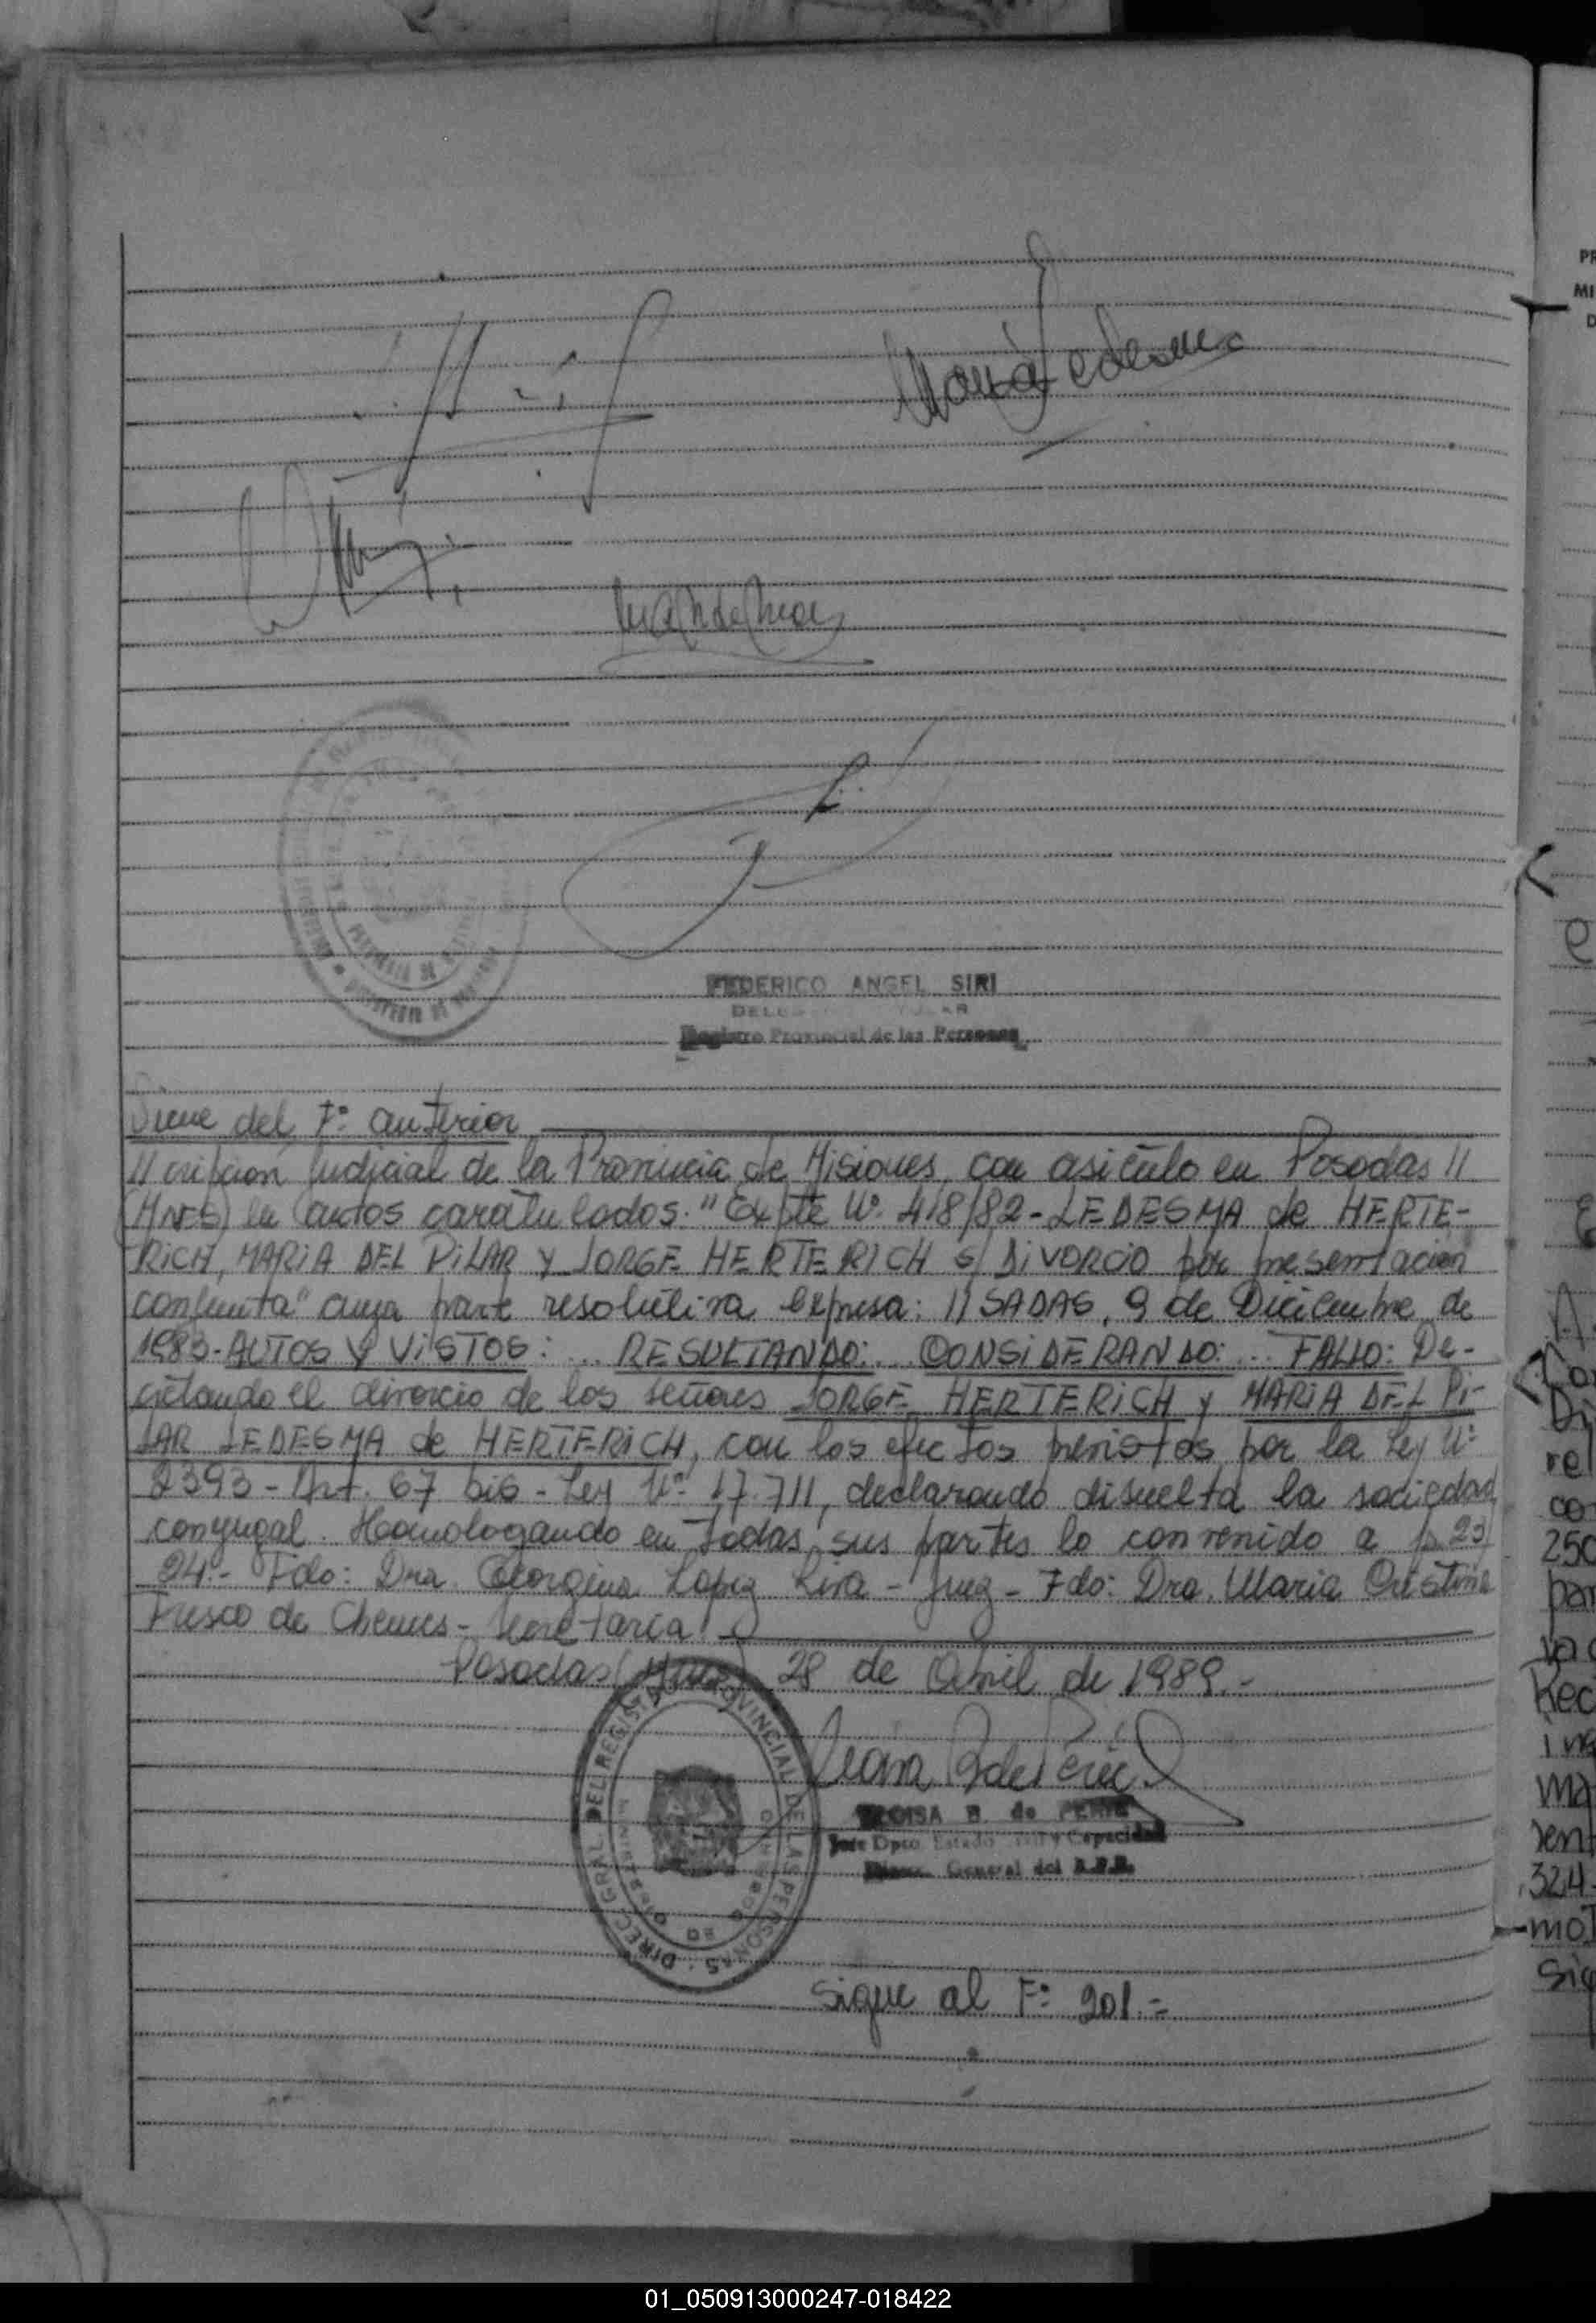 María Ledesma
FEDERICO ANGEL SIRI
Registro Provincial de las Personas
Viene del F° anterior
//cripción Judicial de la Provincia de Misiones, con asiento en Posadas //
(Mnes) en autos caratulados: "Expte N° 418/82 - LEDESMA de HERTE-
RICH, MARIA DEL PILAR Y JORGE HERTERICH s/ DiVORCIO por presentación
conjunta" cuya parte resolutiva expresa: //SADAS, 9 de Diciembre de
1983.- AUTOS Y VISTOS: .. RESULTANDO: .. CONSIDERANDO: .. FALLO: De-
cretando el divorcio de los señores JORGE HERTERICH y MARIA DEL Pi-
LAR LEDESMA de HERTERICH, con los efectos previstos por la Ley N°
2393 - Art. 67 bis - Ley N° 17.711, declarando disuelta la sociedad
conyugal. Homologando en todas sus partes lo convenido a fs 23/
24.- Fdo: Dra. Georgina Lopez Liva - Juez - Fdo: Dra. Maria Cristina
Fresco de Chemes - Secretaria
Posadas (Mnes) 28 de Abril de 1989.-
ELOISA B. de PERIE
Jefe Dpto. Estado Civil y Capacidad
General del R.P.P.
DIREC. GRAL. DEL REGISTRO PROVINCIAL DE LAS PERSONAS
Sigue al F° 201.-
01_050913000247-018422